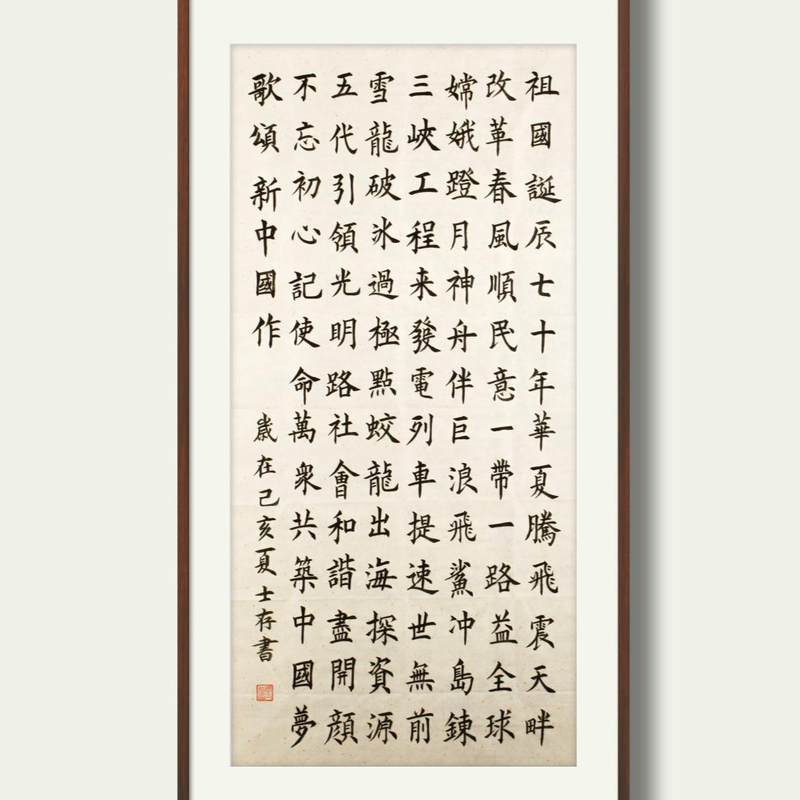 祖國誕辰七十年華夏騰飛震天畔
改革春風順民意一帶一路益全球
嫦娥蹬月神舟伴巨浪飛鯊冲島鍊
三峽工程来發電列車提速世無前
雪龍破氷過極點蛟龍出海探資源
五代引領光明路社會和諧盡開顔
不忘初心記使命萬衆共築中國夢
歌頌新中國作
歲在己亥夏士存書